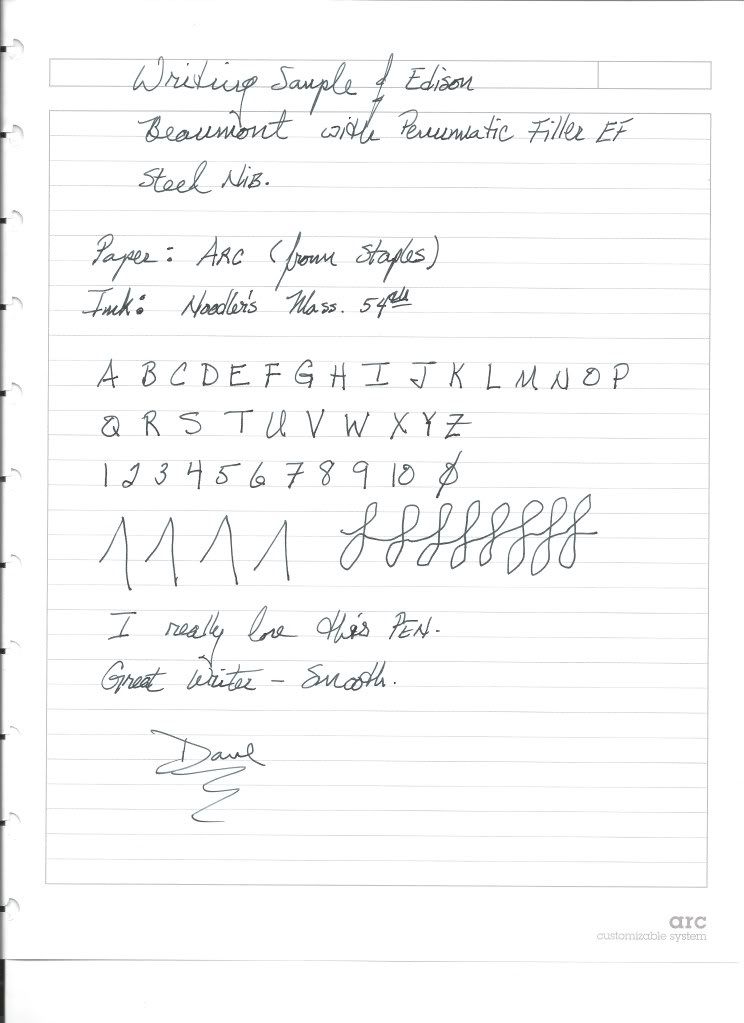 Writing Sample of Edison
Beaumont with Penumatic Filler EF
Steel NIB.
Paper: ARC (from Staples)
Ink: Noodler's Mass. 54th
A B C D E F G H I J K L M N O P
Q R S T U V W X Y Z
1 2 3 4 5 6 7 8 9 10 0
I really love this PEN.
Great Writer – Smooth.
Dave
arc
customizable system